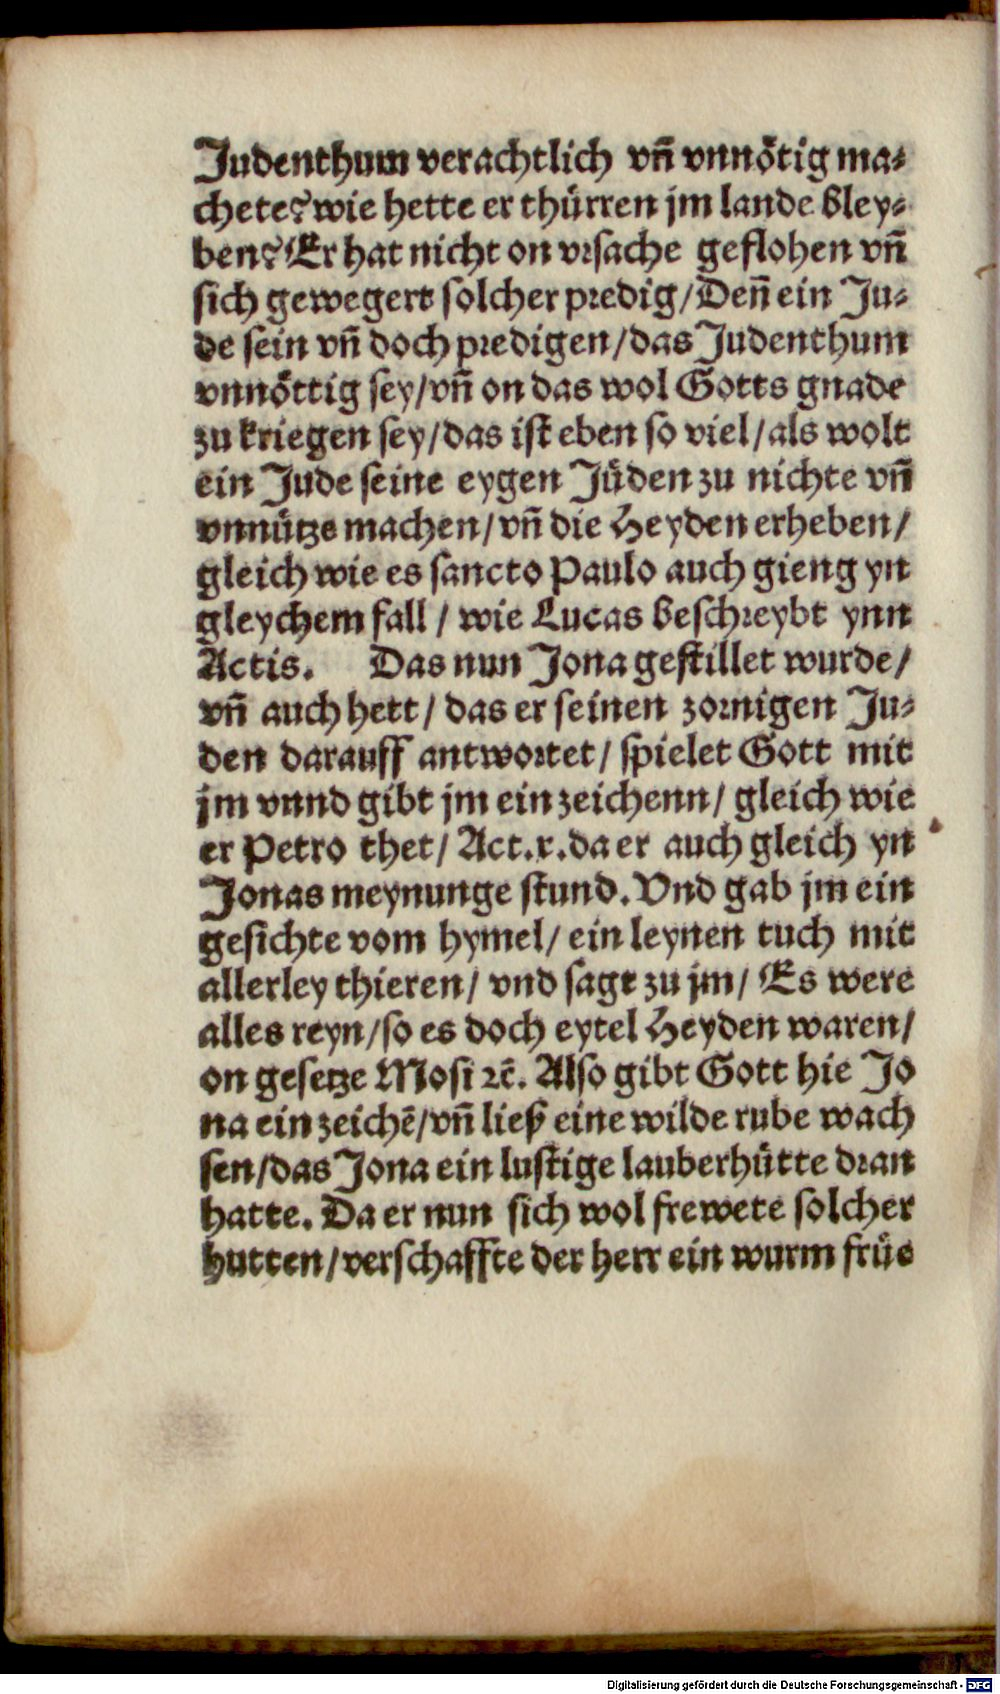 Judenthum verachtlich vñ vnnötig ma⸗
chete? wie hette er thürren jm lande bley⸗
ben? Er hat nicht on vrsache geflohen vñ
sich gewegert solcher predig/ Deñ ein Ju⸗
de sein vñ doch predigen/ das Judenthum
vnnöttig sey/ vñ on das wol Gotts gnade
zu kriegen sey/ das ist eben so viel/ als wolt
ein Jude seine eygen Jüden zu nichte vñ
vnnütze machen/ vñ die Heyden erheben/
gleich wie es sancto Paulo auch gieng yn
gleychem fall/ wie Lucas beschreybt ynn
Actis. Das nun Jona gestillet wurde/
vñ auch hett/ das er seinen zornigen Ju⸗
den darauff antwortet/ spielet Gott mit
jm vnnd gibt jm ein zeichenn/ gleich wie
er Petro thet/ Act.x. da er auch gleich yn
Jonas meynunge stund. Vnd gab jm ein
gesichte vom hymel/ ein leynen tuch mit
allerley thieren/ vnd sagt zu jm/ Es were
alles reyn/ so es doch eytel Heyden waren/
on gesetze Mosi ꝛc̄. Also gibt Gott hie Jo
na ein zeichē/ vñ ließ eine wilde rube wach
sen/ das Jona ein lustige lauberhütte dran
hatte. Da er nun sich wol frewete solcher
hutten/ verschaffte der herr ein wurm früe
Digitalisierung gefördert durch die Deutsche Forschungsgemeinschaft - DFG